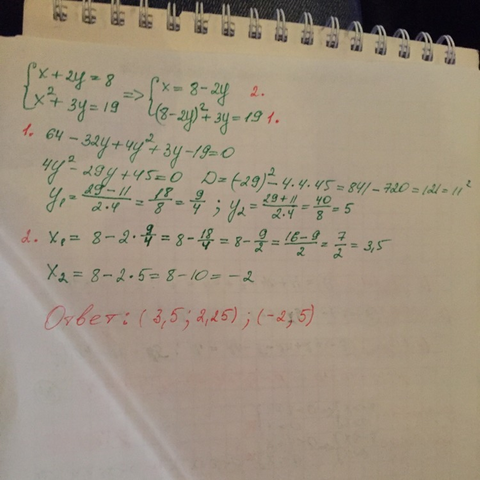 {x + 2y = 8 => {x = 8 - 2y 2.
{x² + 3y = 19 {(8 - 2y)² + 3y = 19 1.
1. 64 - 32y + 4y² + 3y - 19 = 0
4y² - 29y + 45 = 0 D = (-29)² - 4·4·45 = 841 - 720 = 121 = 11²
y₁ = (29 - 11)/(2·4) = 18/8 = 9/4 ; y₂ = (29 + 11)/(2·4) = 40/8 = 5
2. x₁ = 8 - 2·9/4 = 8 - 18/4 = 8 - 9/2 = (16 - 9)/2 = 7/2 = 3,5
x₂ = 8 - 2·5 = 8 - 10 = -2
Ответ: (3,5; 2,25) ; (-2; 5)